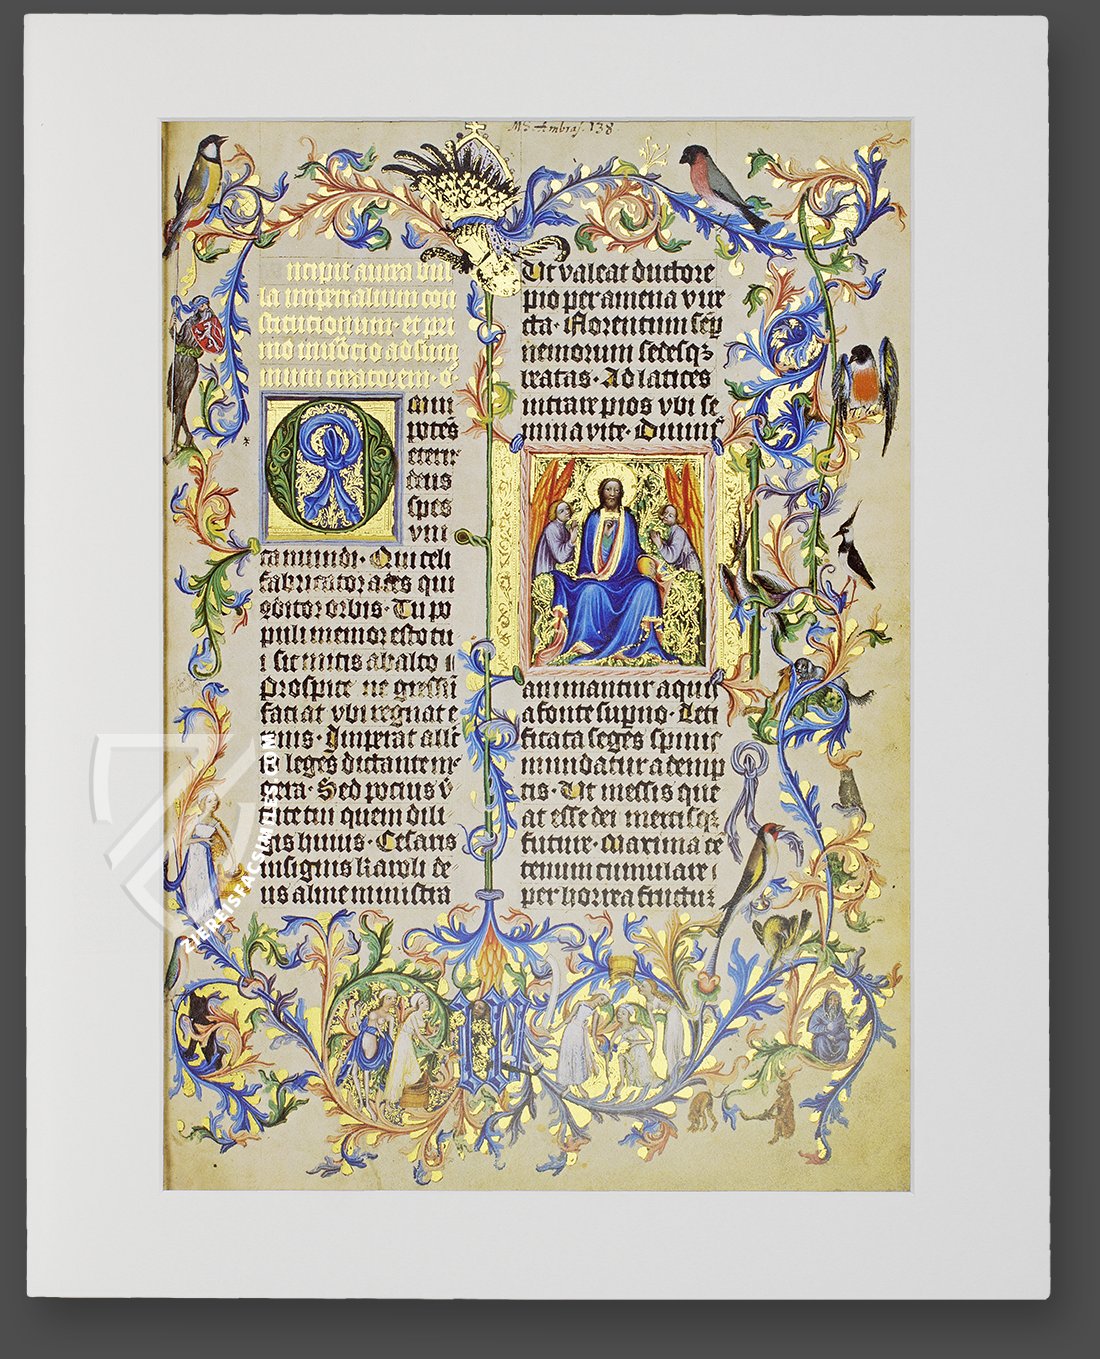 MS. Ambras. 138.
ncipit aurea bul
la imperialium con
stitucionum · et pri
mo inuocio ad sum
mum creatorem · O
mni
potēs
eterne
deus
spes
vni
ca mundi · Qui celi
fabricator ades qui
conditor orbis · Tu po
puli memor esto tui
sic mitis ab alto
prospice ne gressū
faciat vbi regnat e
rinis · Imperat allec
to leges dictante me
gera · Sed pocius v
tute tui quem dili
gis huius · Cesaris
insignis karoli de
us alme ministra
Ut valeat ductore
pio per amena vire
cta · Florentum semꝑ
nemorum sedesqꝫ
beatas · Ad latices
intrare pios vbi se
mina vite · Diuinis
animantur aquis
a fonte supno · Leti
ficata seges spinis
mundatur ademp
tis · Ut messis que
at esse dei mercisqꝫ
future · Maxima ce
tenum cumulare
per horrea fructuꝫ
ZIEREISFACSIMILES.COM